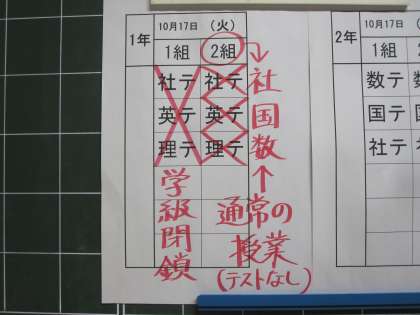 1年
10月17日 (火)
1組 2組
社テ 社テ
英テ 英テ
理テ 理テ
学級閉鎖
社
国
数
通常の
授業
(テストなし)
2年
10月17日
1組
数テ
国テ
社テ